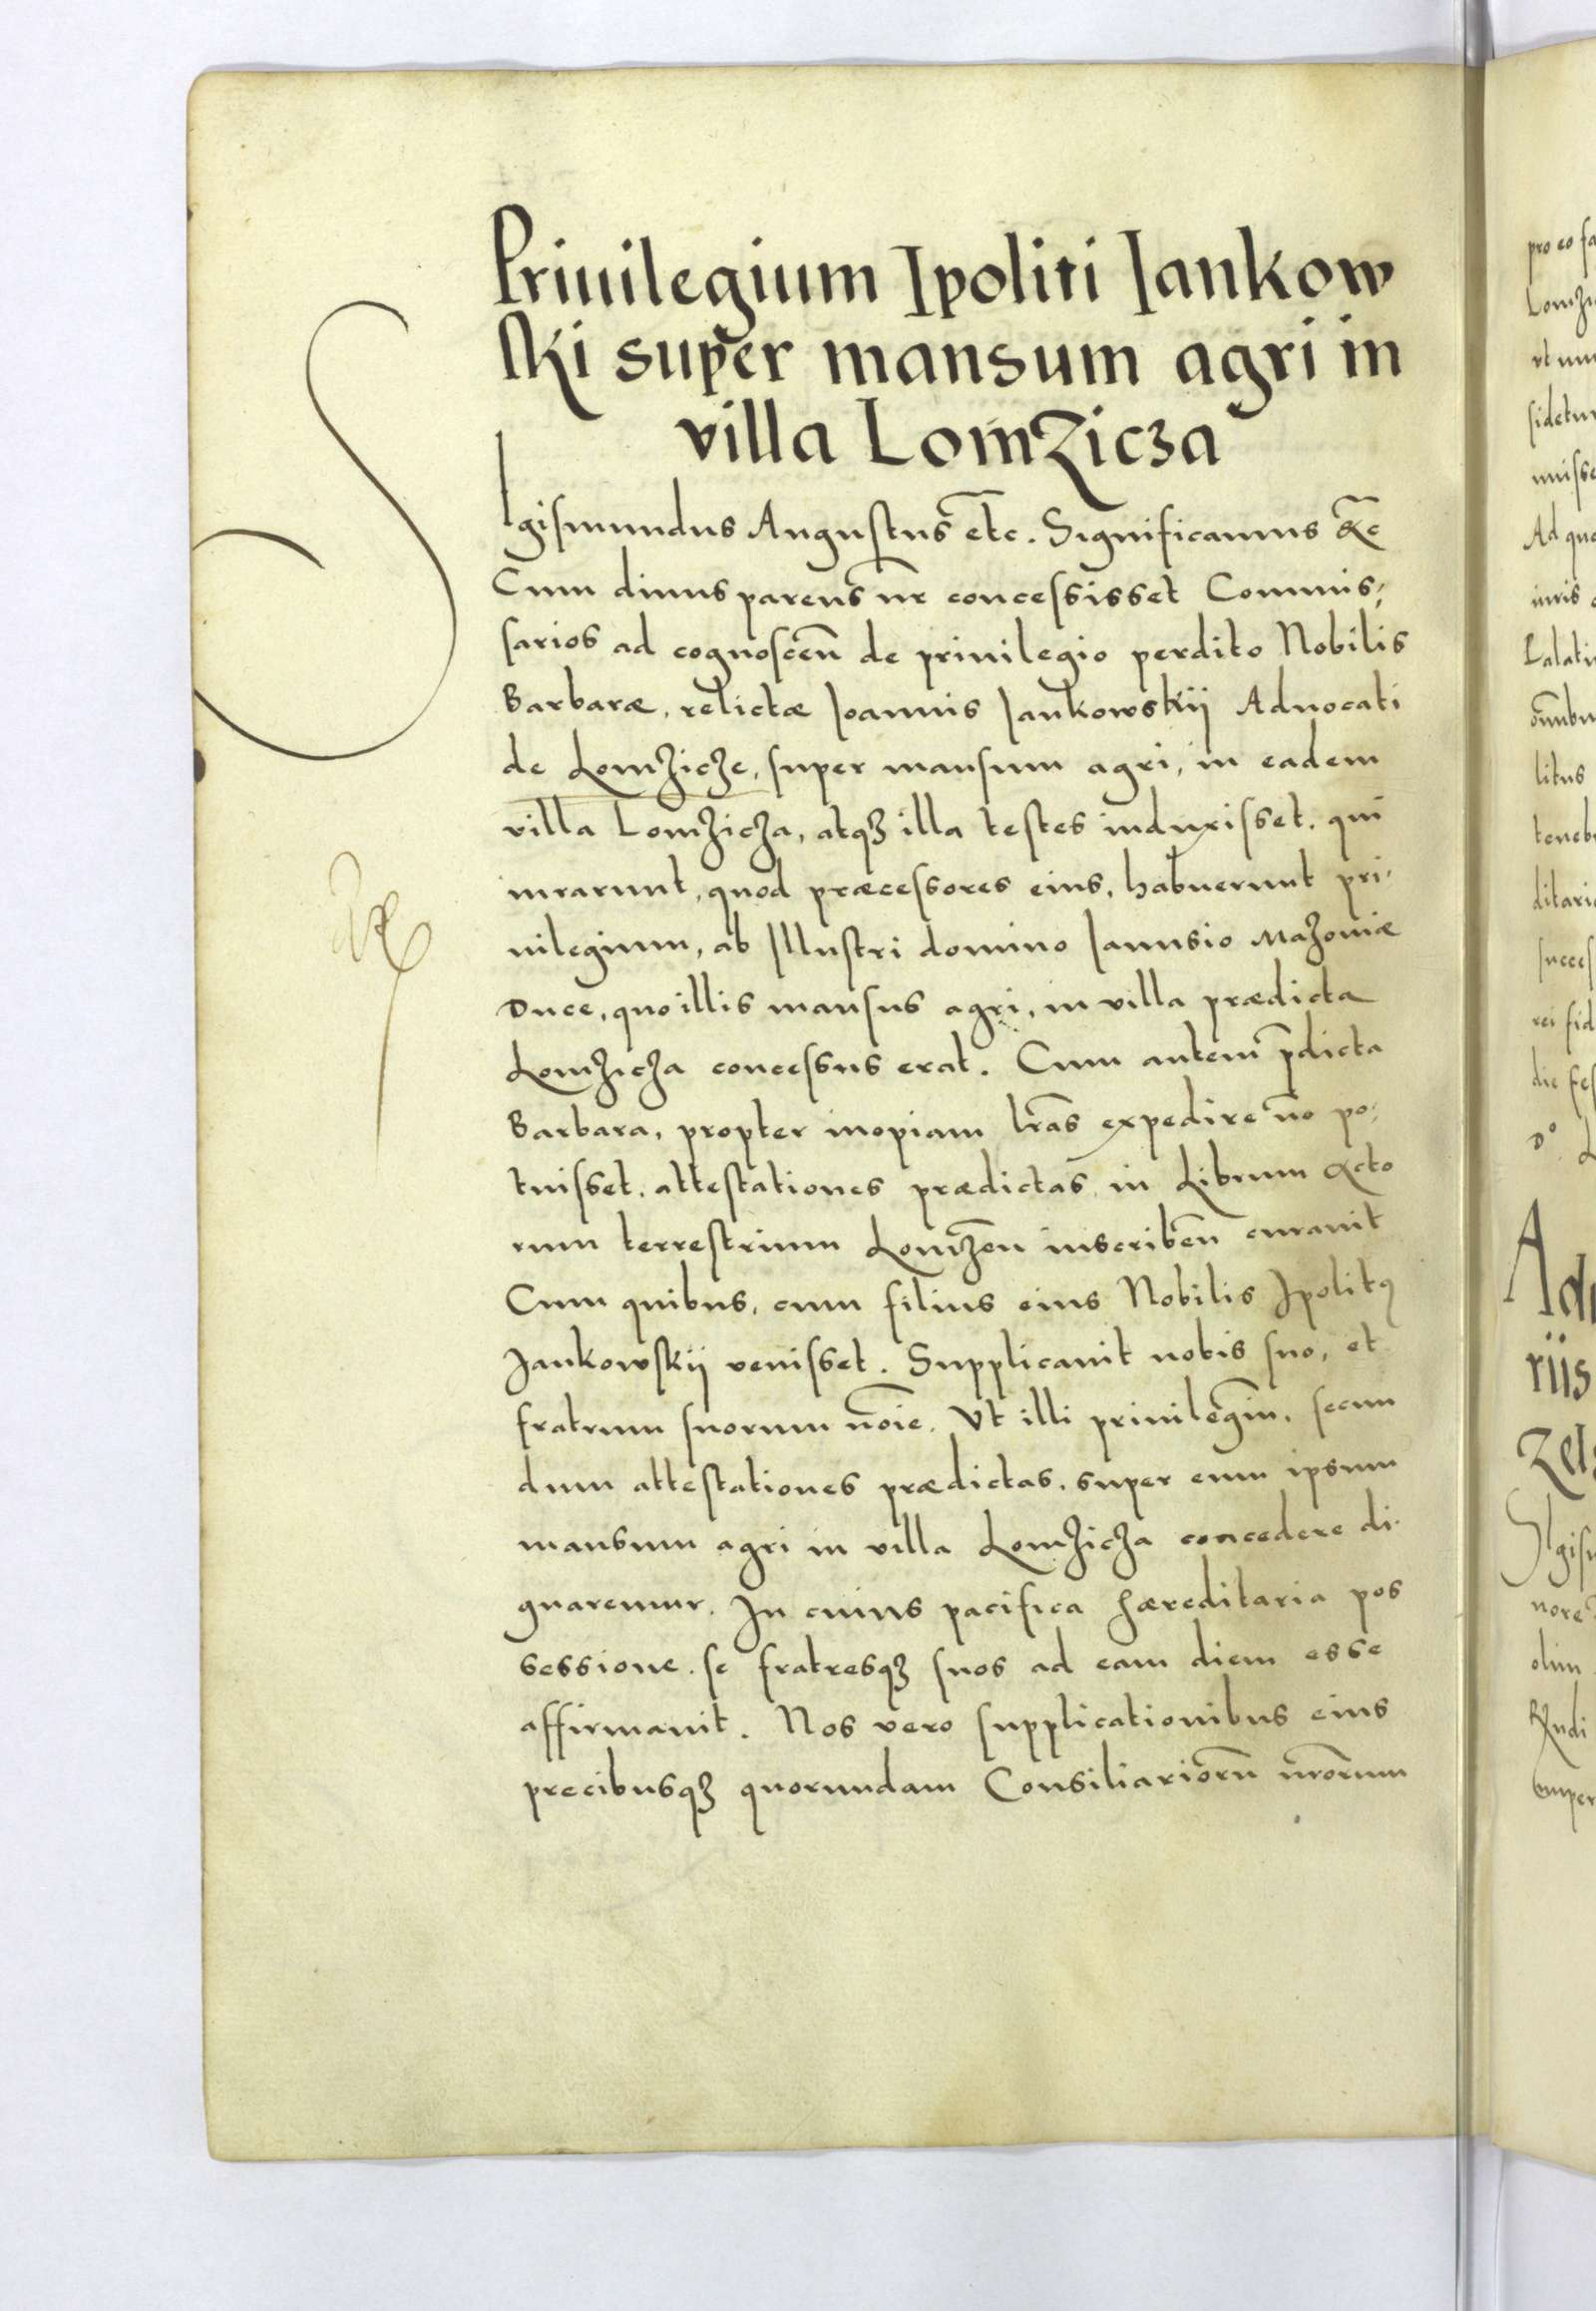 Priuilegium Ipoliti Iankow
ski super mansum agri in
villa Lomzicza
SIgismundus Augustus etc. Significamus &c
Cum diuus parens nr̄ concessisset Commis,
sarios ad cognosceñ de priuilegio perdito Nobilis
Barbaræ, relictæ Ioannis Iankowskij Aduocati
de Lomzicze, super mansum agri, in eadem
villa Lomzicza, atqꝫ illa testes induxisset, qui
iurarunt, quod præcessores eius, habuerunt pri,
uilegium, ab Illustri domino Ianusio Mazouiæ
Duce, quo illis mansus agri, in villa prædicta
Lomzicza concessus erat. Cum autem p̄dicta
Barbara, propter inopiam lr̄as expedire nō po,
tuisset, attestationes prædictas, in Librum Acto
rum terrestrium Lomzeñ inscribeñ curauit
Cum quibus, cum filius eius Nobilis Ipolitꝰ
Iankowskij venisset. Supplicauit nobis suo, et
fratrum suorum nōie. Vt illi priuilegiū, secun
dum attestationes prædictas, super eum ipsum
mansum agri in villa Lomzicza concedere di,
gnaremur. In cuius pacifica hæreditaria pos
sessione, se fratresqꝫ suos ad eam diem esse
affirmauit. Nos vero supplicationibus eius
precibusqꝫ quorundam Consiliariorū nr̄orum
pro eo
Lomzi
sidetur
uisse
Ad
iuris
Palati
omnibu
litus
teneb
ditari
succes
rei fid
die
D°
A
riis
uore
olim
semper